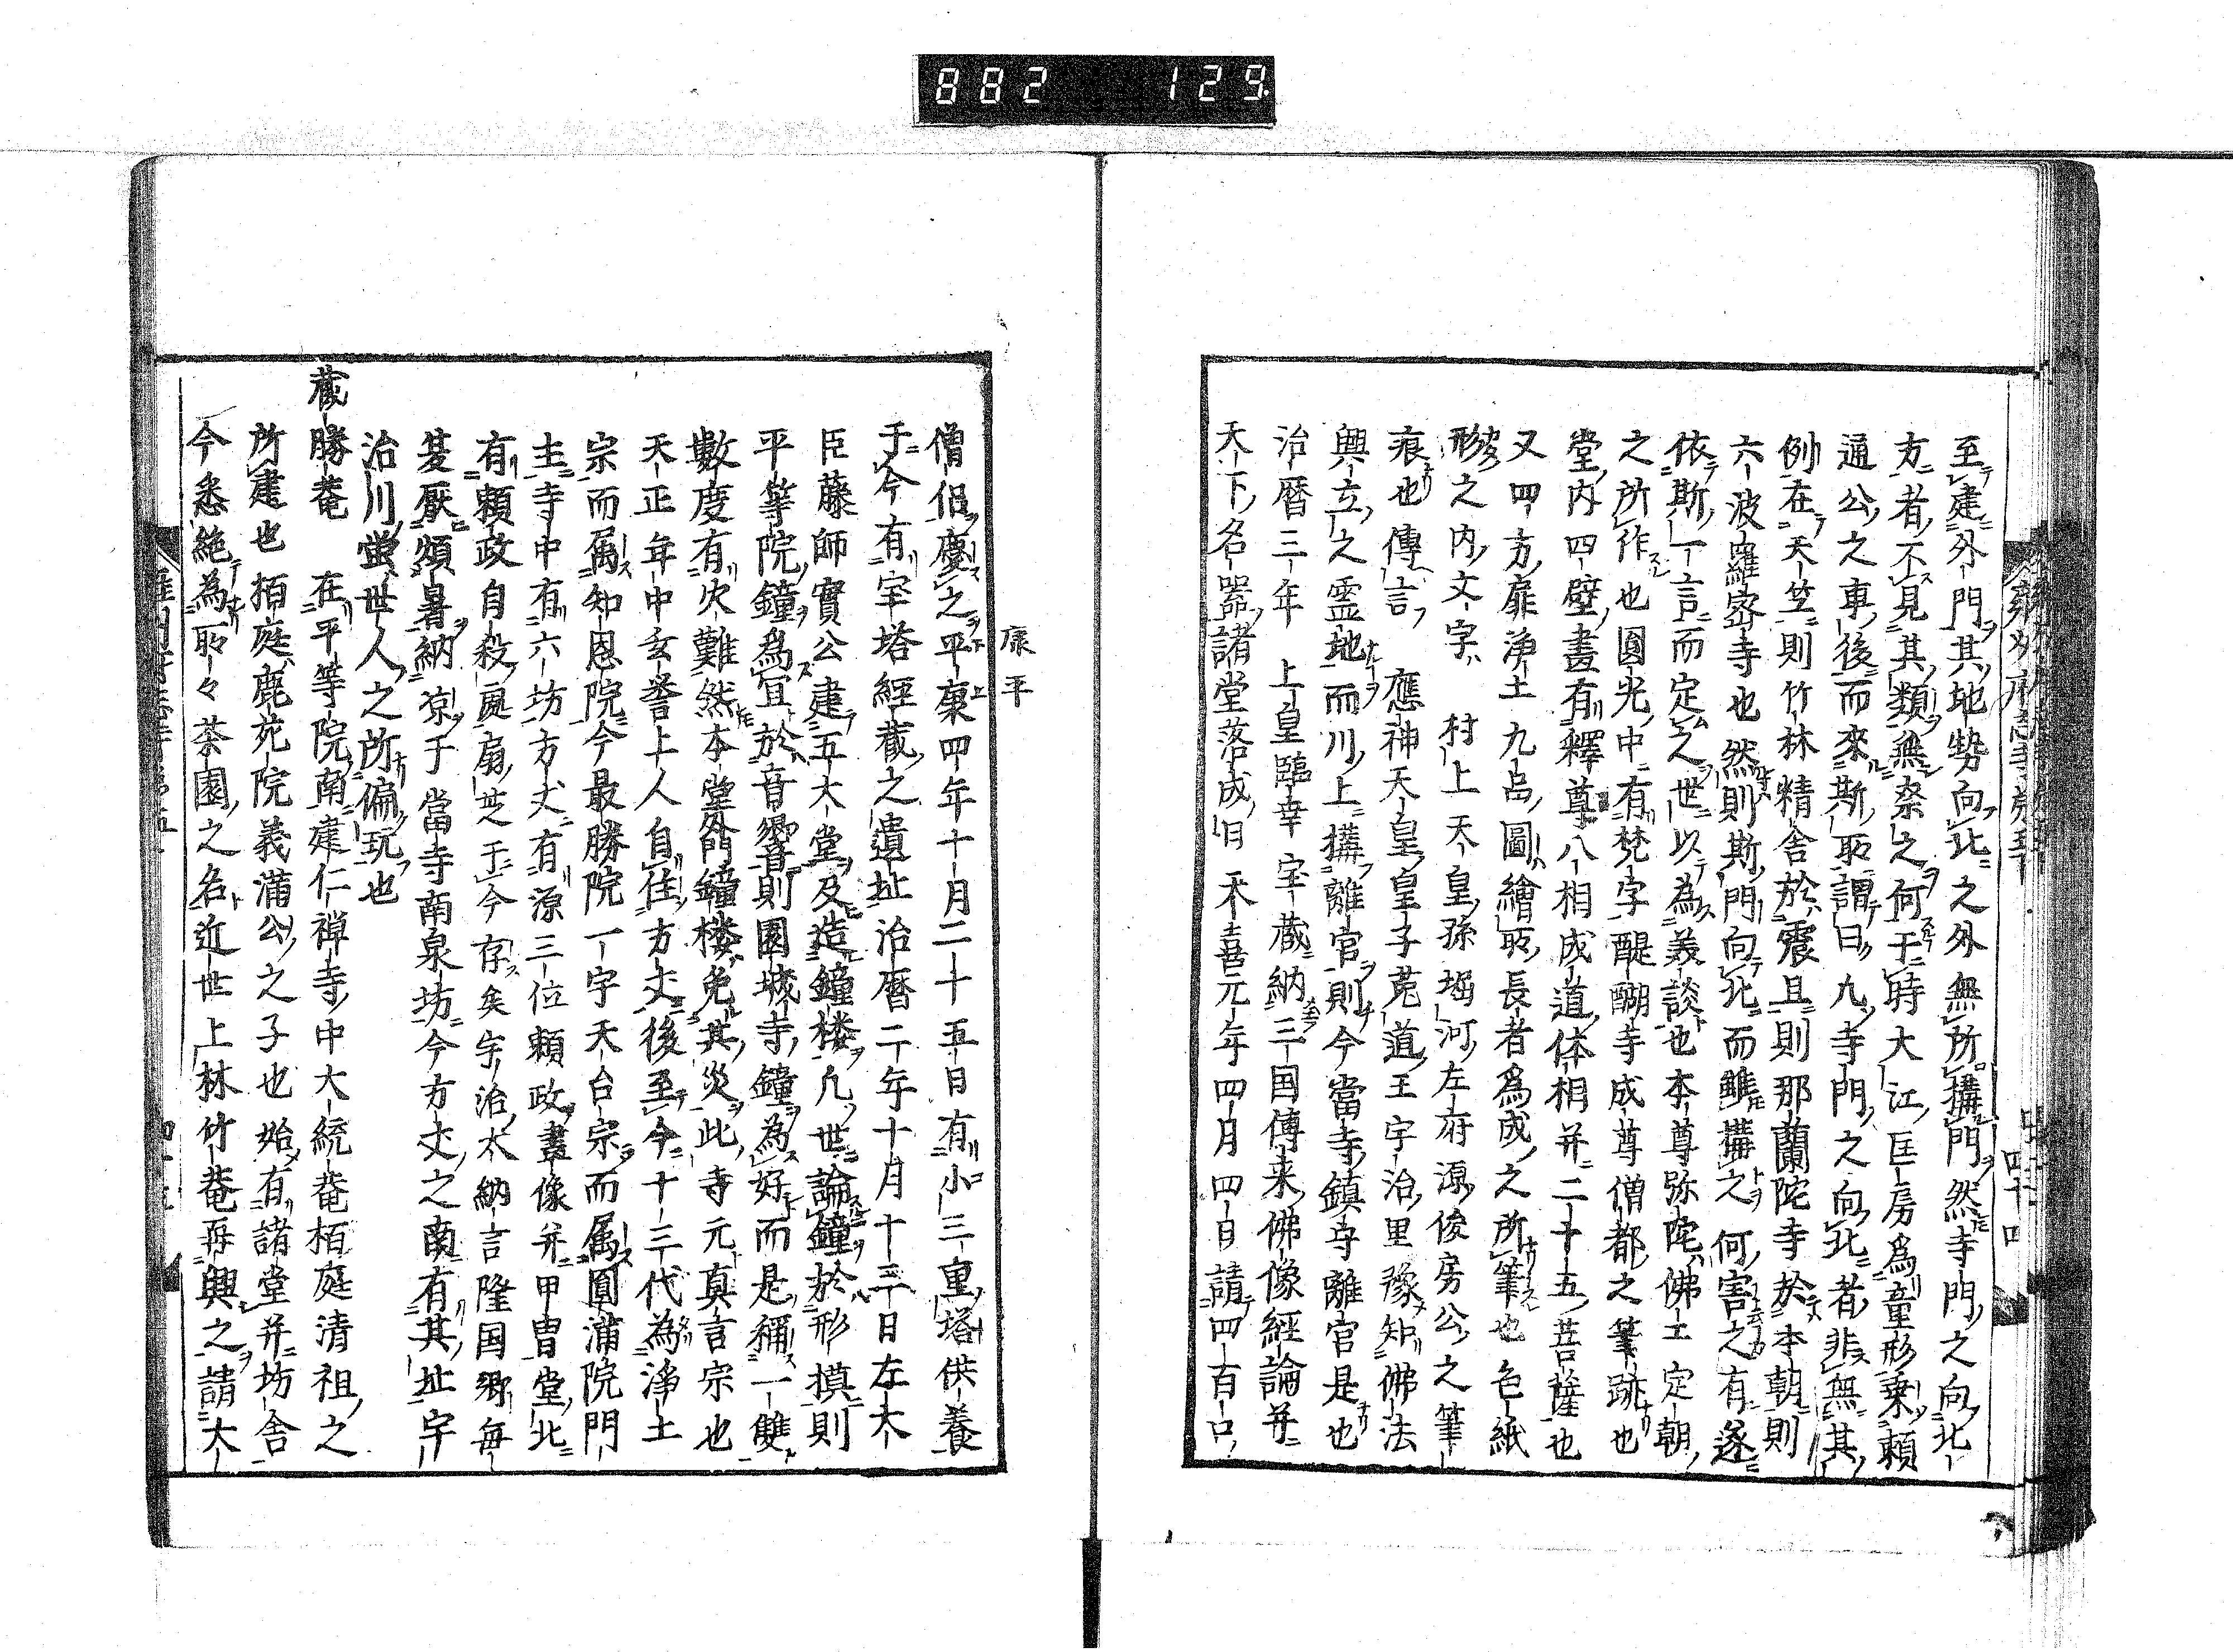 882 129
至建外門其地勢向北之外無所搆門然寺門之向北
方者不見其類無奈之何于時大江匡房爲童形乗頼
通公之車後而來斯耴謂曰九寺門之向北者非無其
例在天竺則竹林精舎於震旦則那蘭陀寺於本朝則
六波羅密寺也然則斯門向北而雖搆之何害之有遂
依斯一言而定之世以為義談也本尊弥陀佛工定朝
之所作也圓光中有梵字醍醐寺成尊僧都之筆跡也
堂内四壁畫有釋尊八相成道体相并二十五菩薩也
又四方扉浄土九品圖繪耴長者爲成之所筆也色紙
形之内文字村上天皇孫堀河左府源俊房公之筆
痕也傳言應神天皇皇子菟道王宇治里豫知佛法
興立之霊地而川上搆離宮則今當寺鎮守離宮是也
治暦三年上皇臨幸宝蔵納三国傳来佛像經論并
天下名噐諸堂落成日天喜元年四月四日請四百口
康平
僧侶慶之平康四年十月二十五日有小三重塔供養
于今有宇塔經蔵之遺址治暦二年十月十三日左大
臣藤師實公建五大堂及造鐘楼凢世論鐘於形摸則
平等院鐘爲冝於音響則園城寺鐘為好而是稱一雙
數度有火難然本堂外門鐘楼免其炎此寺元真言宗也
天正年中玄誉上人自住方丈後至今十三代為浄土
宗而属知恩院今最勝院一宇天台宗而属圓滿院門
主寺中有六坊方丈有源三位頼政畫像并甲冑堂北
有頼政自殺処扇芝于今存矣宇治大納言隆国卿毎
夏厭煩暑納凉于當寺南泉坊今方丈之南有其址宇
治川蛍世人之所偏玩也
蔵勝菴 在平等院南建仁禅寺中大統菴栢庭清祖之
所建也栢庭鹿苑院義滿公之子也始有諸堂并坊舎
今悉絶為耴々茶園之名近世上林竹菴再興之請大